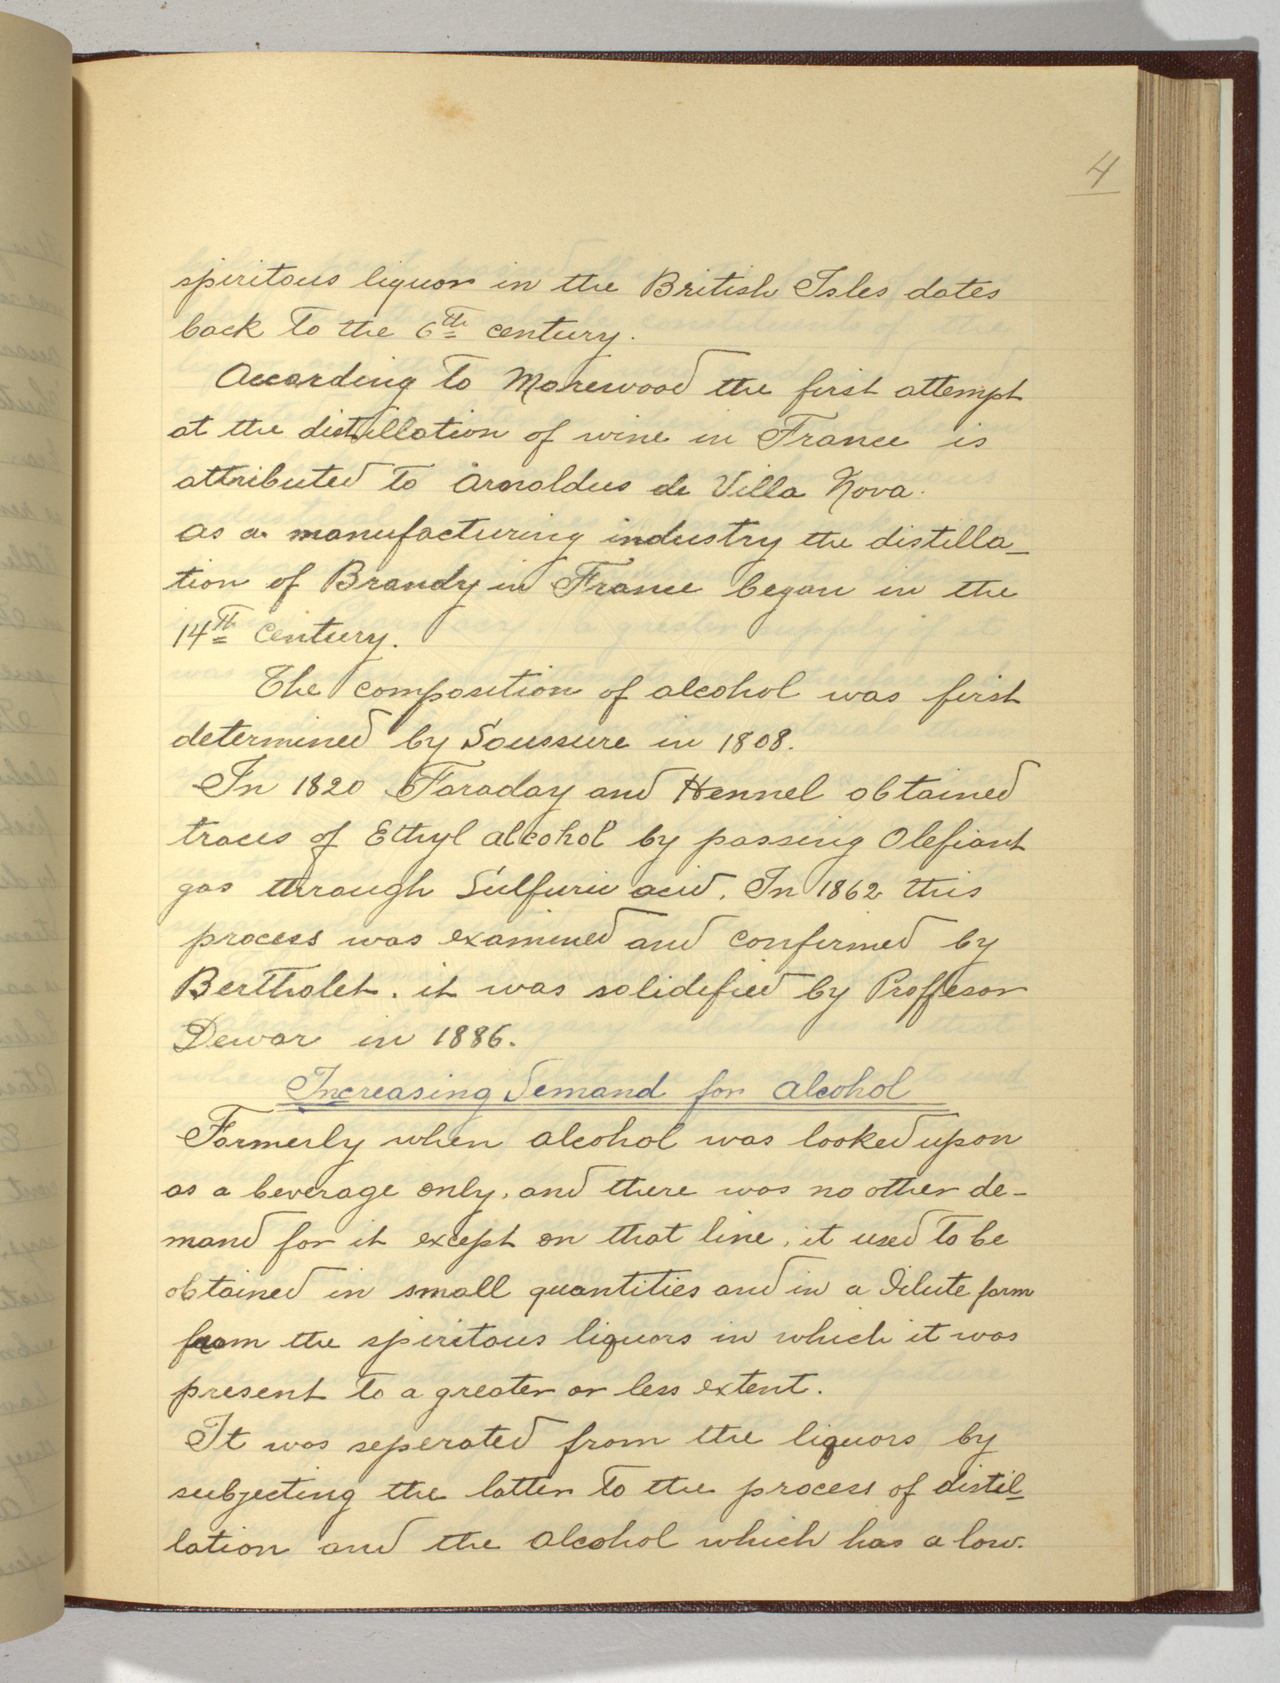 4
spiritous liquor in the British Isles dates
back to the 6th century.
According to Morewood the first attempt
at the distillation of wine in France is
attributed to Arnoldus de Villa Nova.
As a manufacturing industry the distilla-
tion of Brandy in France began in the
14th century.
The composition of alcohol was first
determined by Soussure in 1808.
In 1820 Faraday and Hennel obtained
traces of Ethyl alcohol by passing Olefiant
gas through Sulfuric acid. In 1862 this
process was examined and confirmed by
Bertholet. it was solidefied by Proffesor
Dewar in 1886.
Increasing Demand for Alcohol
Formerly when alcohol was looked upon
as a beverage only, and there was no other de-
mand for it except on that line, it used to be
obtained in small quantities and in a dilute form
from the spiritous liquors in which it was
present to a greater or less extent.
It was seperated from the liquors by
subjecting the latter to the process of distil-
lation and the alcohol which has a low.